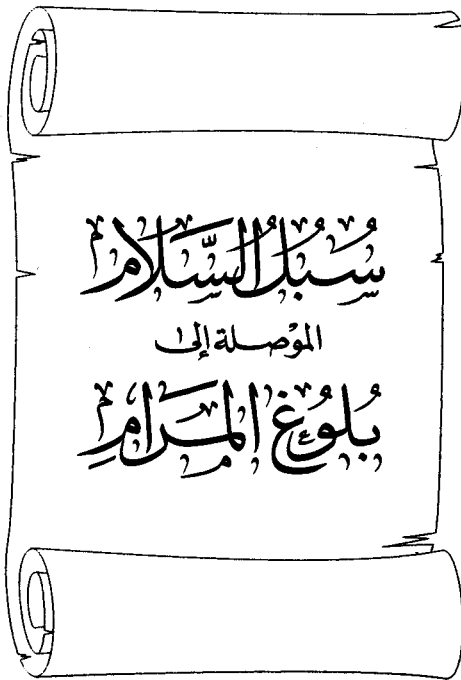 سُبُلُ السَّلَام
الموْصلة إلى
بُلُوُغ المَرَامِ